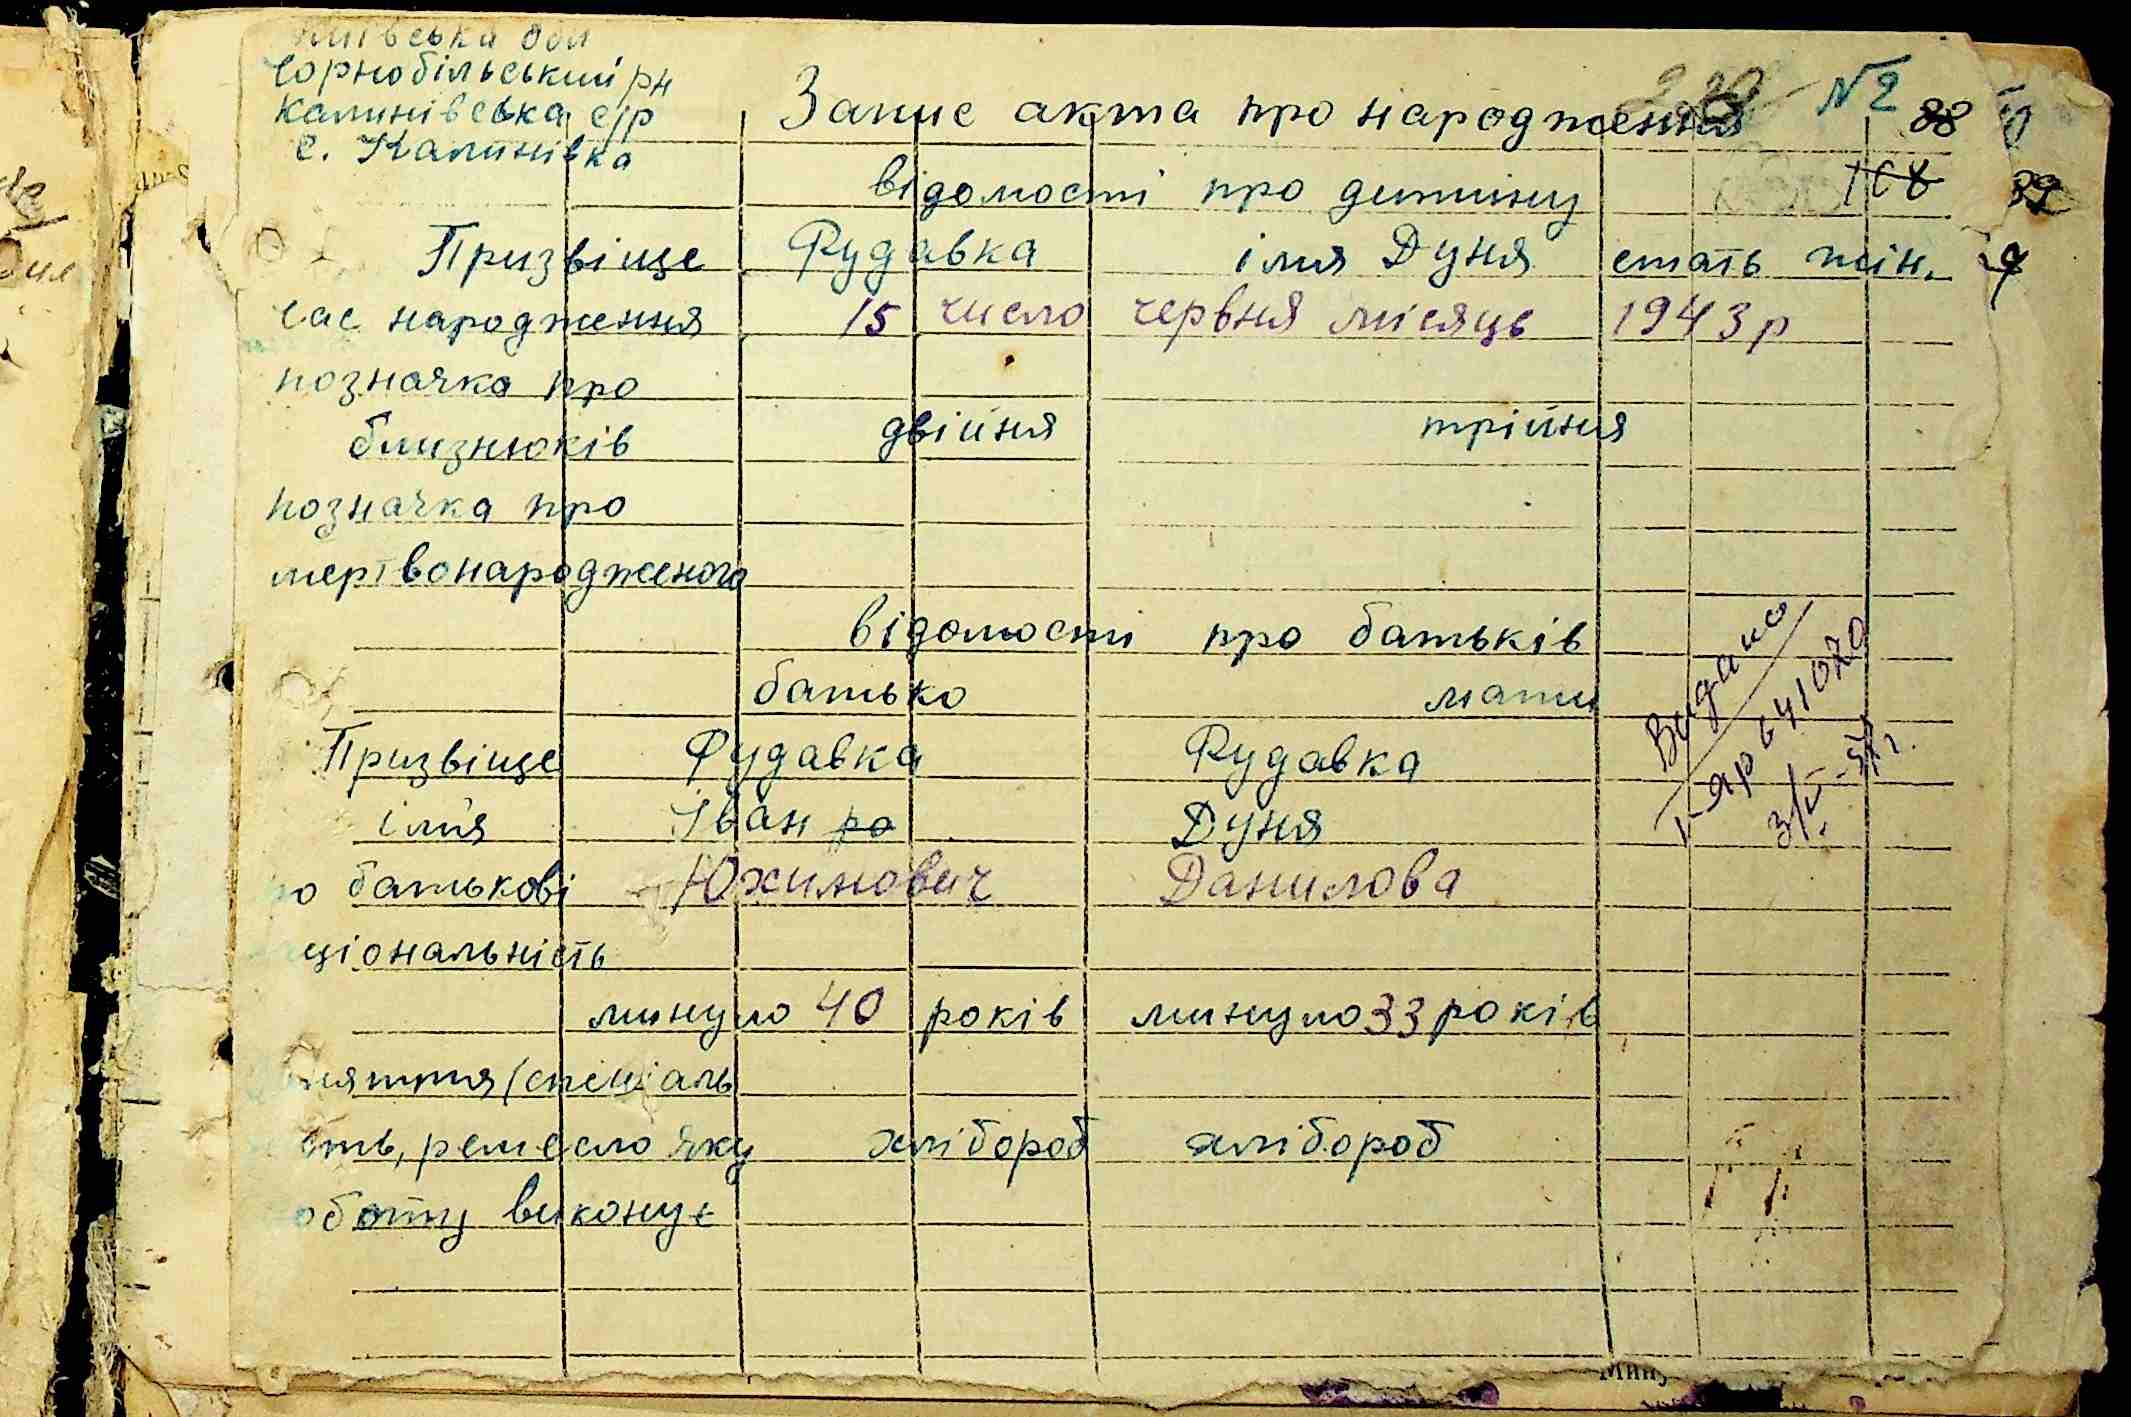 Київська обл
Чорнобільський рн
Калинівська с/р
с. Калинівка
Запис акта про народження
220 №2 88
відомості про дитину
168 39
Призвіще Рудавка імя Дуня стать жін.
час народження 15 число червня місяць 1943 р
позначка про
близнюків двійня трійня
позначка про
мертвонародженого
відомості про батьків
батько мати
Призвіще Рудавка Рудавка
імя Іван ро Дуня
по батькові Юхимович Данилова
ціональність
минуло 40 років минуло 33 років
няття (спеціаль
сть, ремесло яку хлібороб хлібороб
оботу виконує
Видано
І-яр 641070
3/V-57г.
Мину